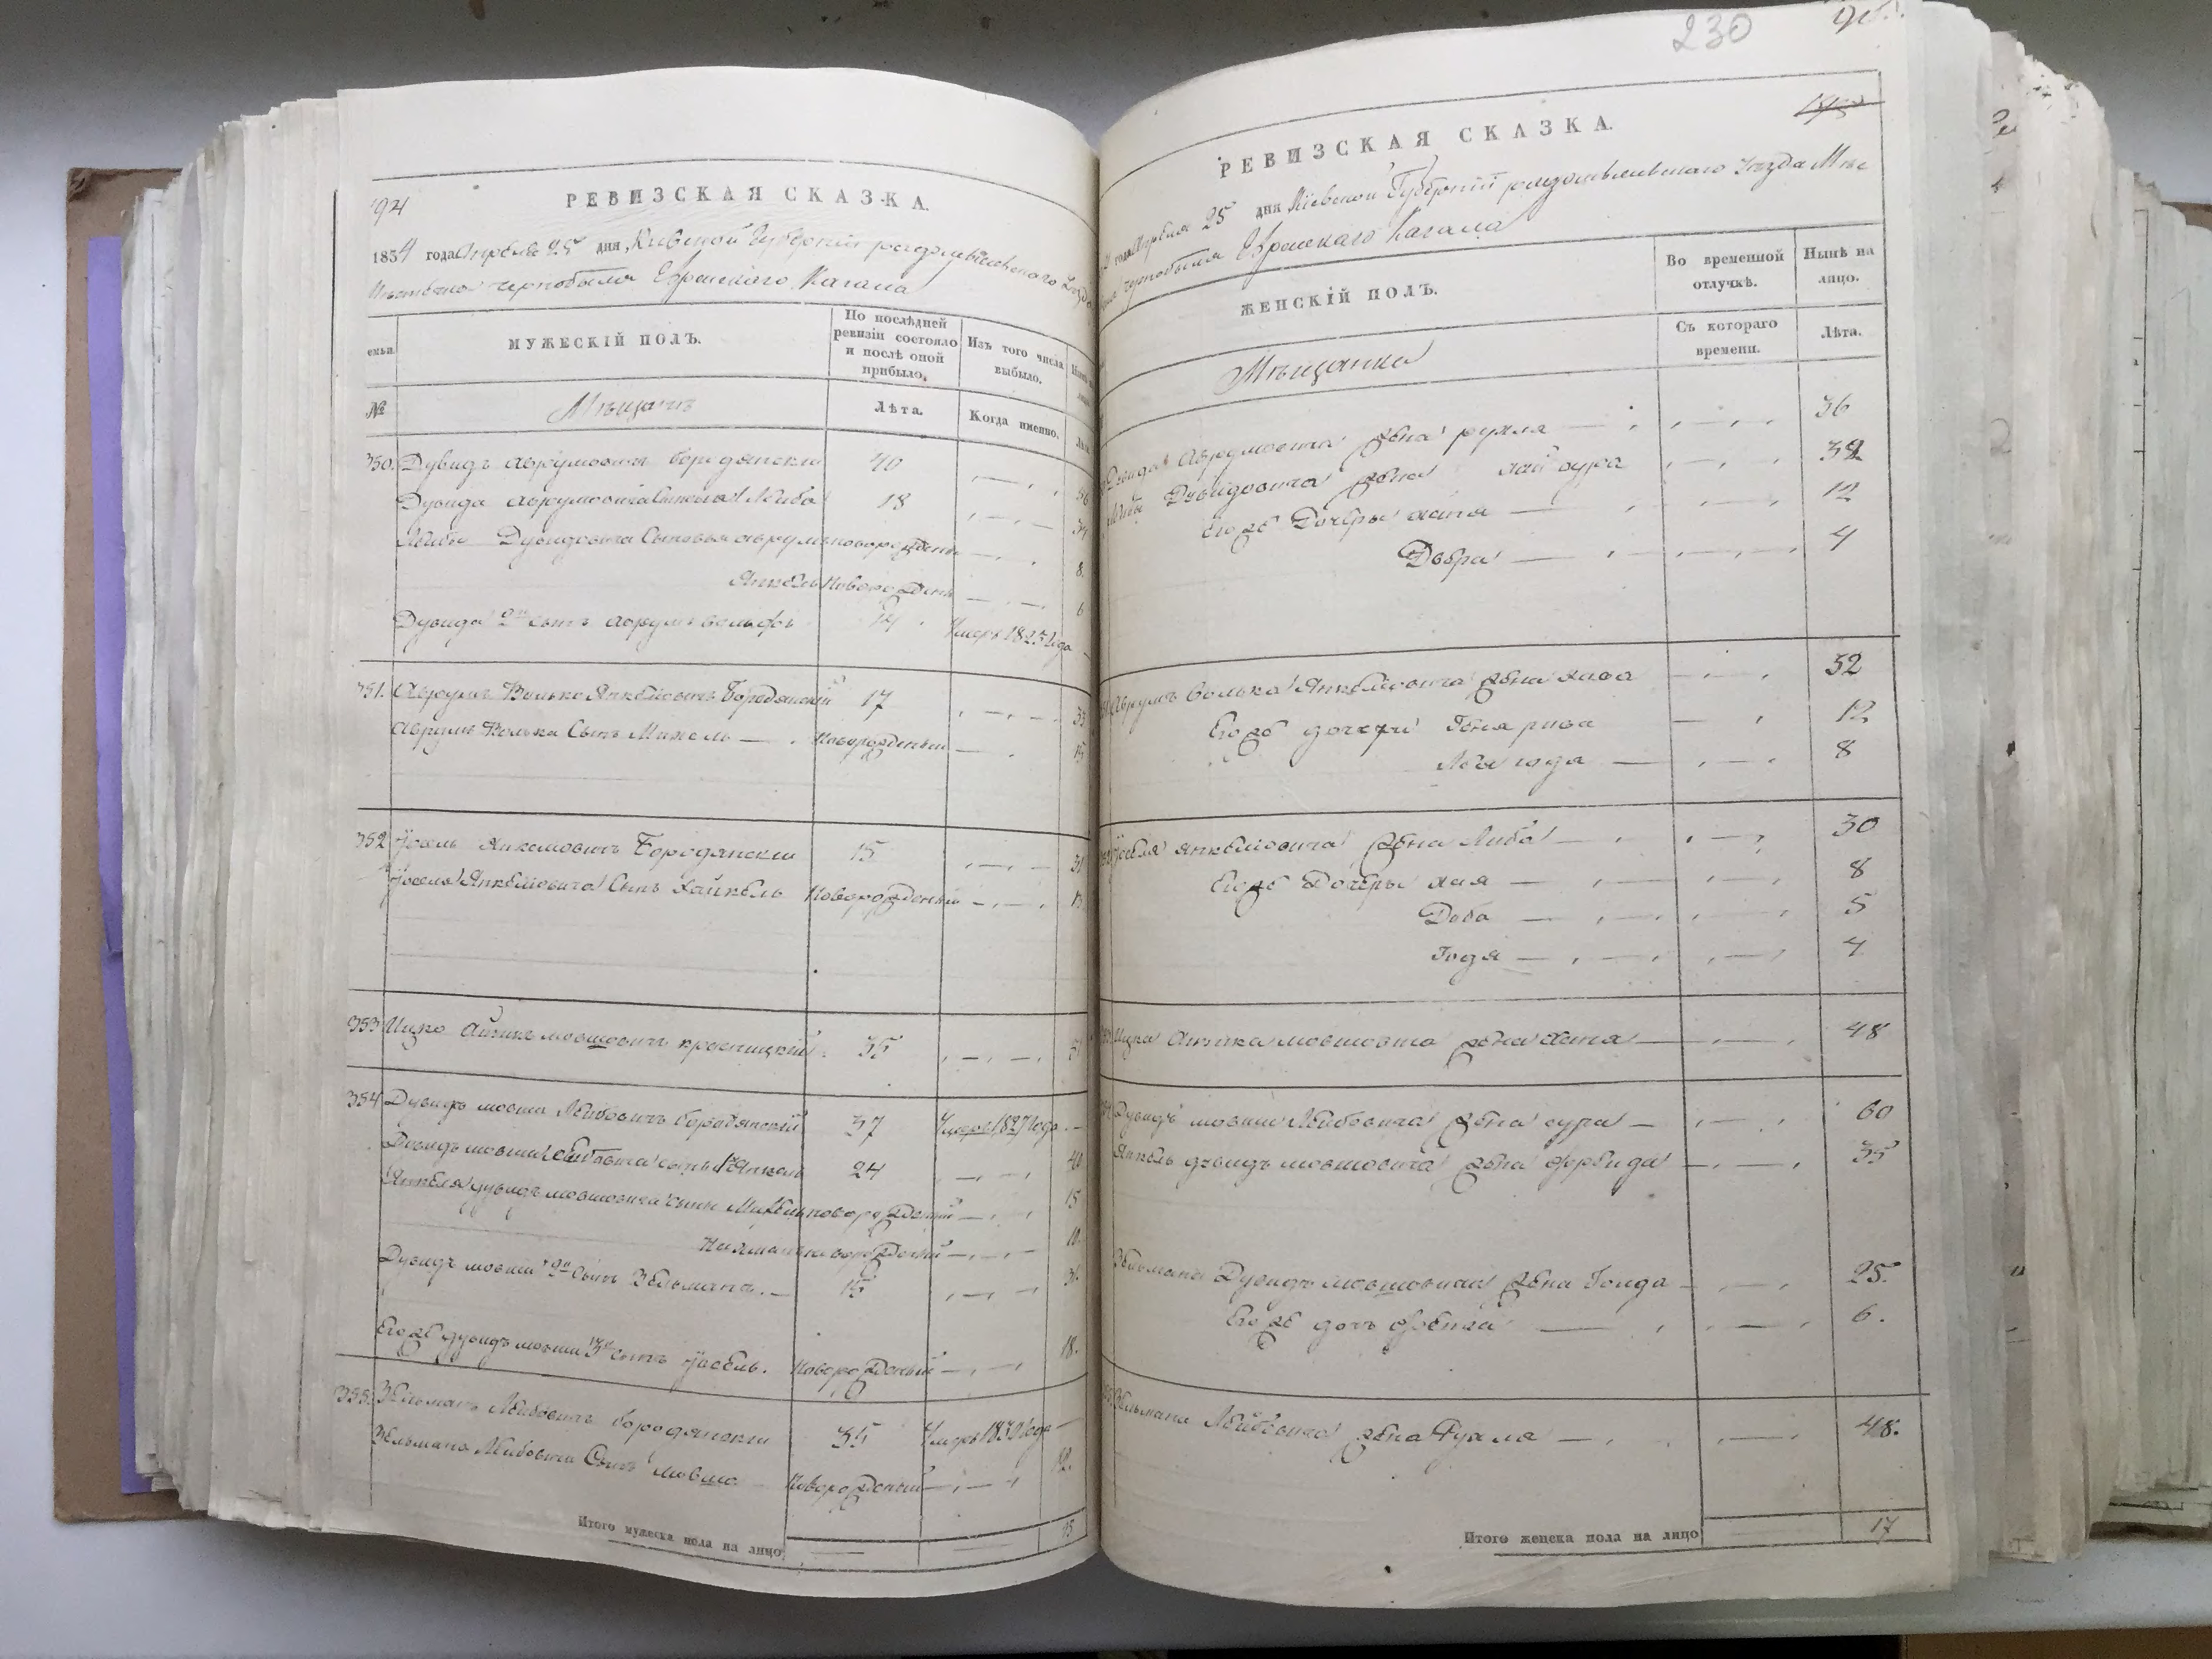 194
РЕВИЗСКАЯ СКАЗКА.
1834 года Апреля 25 дня, Киевской Губернии радомысльского Уезда
Местечка чернобыля Еврейского Кагала
семьи.
МУЖЕСКІЙ ПОЛЪ.
По послѣдней ревизіи состояло и послѣ оной прибыло.
Изъ того числа выбыло.
№
Мещанъ
Лѣта.
Когда именно.
350. Дувидъ Аврумовичъ бородянски 40
Дувида Аврумовича сынъ Лейба 18 34
Лейбы Дувидовича Сыновья аврумъ новорожденъ 8.
Янкель Новорожденъ 6
Дувида 2й сынъ аврумъ вольфъ 14 Умеръ 1823 года
351. Аврумъ Волько Янкелювичъ Бородянский 17 33
Аврумъ Волька Сынъ Михель новорожденный 15
352 Иосель Янкелювичъ Бородянски 15 31
Иоселя Янкелювича Сынъ Хайкель Новорожденный 13
353 Ицко Айзикъ мовшовичъ красицкий 35 51
354 Дувидъ мовша Лейбовичъ бородянский 37 Умеръ 1827 года
Дувидъ мовши Лейбовича сынъ 1й Янкель 24 40
Янкеля дувидъ мовшовича сыны Михель новорожденный 15
Нахманъ новорожденный 10.
Дувидъ мовши 2й сынъ Зельманъ. 15 31.
Его же дувидъ мовши 3й сынъ Иосель. Новорожденый 18.
355. Зельманъ Лейбовичъ бородянски 35 Умеръ 1830 года
Зельмана Лейбовича Сынъ мовша Новорожденый 12.
Итого мужеска пола на лицо 15
230
РЕВИЗСКАЯ СКАЗКА.
года Апреля 25 дня Киевской Губернии радомысльского Уезда Мѣс
чернобыля Еврейского Кагала
ЖЕНСКІЙ ПОЛЪ.
Во временной отлучкѣ.
Нынѣ на лицо.
Мещанка
Съ котораго времени.
Лѣта.
Дувида Аврумовича жена рухля 36
Лейбы Дувидовича жена хай сура 32
Его же Дочеры хася 12
Двера 4
Аврумъ волька Янкелювича жена хива 32
Его же дочери Геня рива 12
8
Иоселя янкелювича жена Либа 30
Его же Дочеры хая 8
Доба 5
Годя 4
Ицка Айзика мовшовича жена Хася 48
Дувидъ мовши Лейбовича жена сура 60
Янкель дувидъ мовшовича жена фрейда 35
Зельмана Дувидъ мовшовича жена Голда 25.
Его же дочъ фейга 6.
Зельмана Лейбовича жена Рухля 48.
Итого женска пола на лицо 17